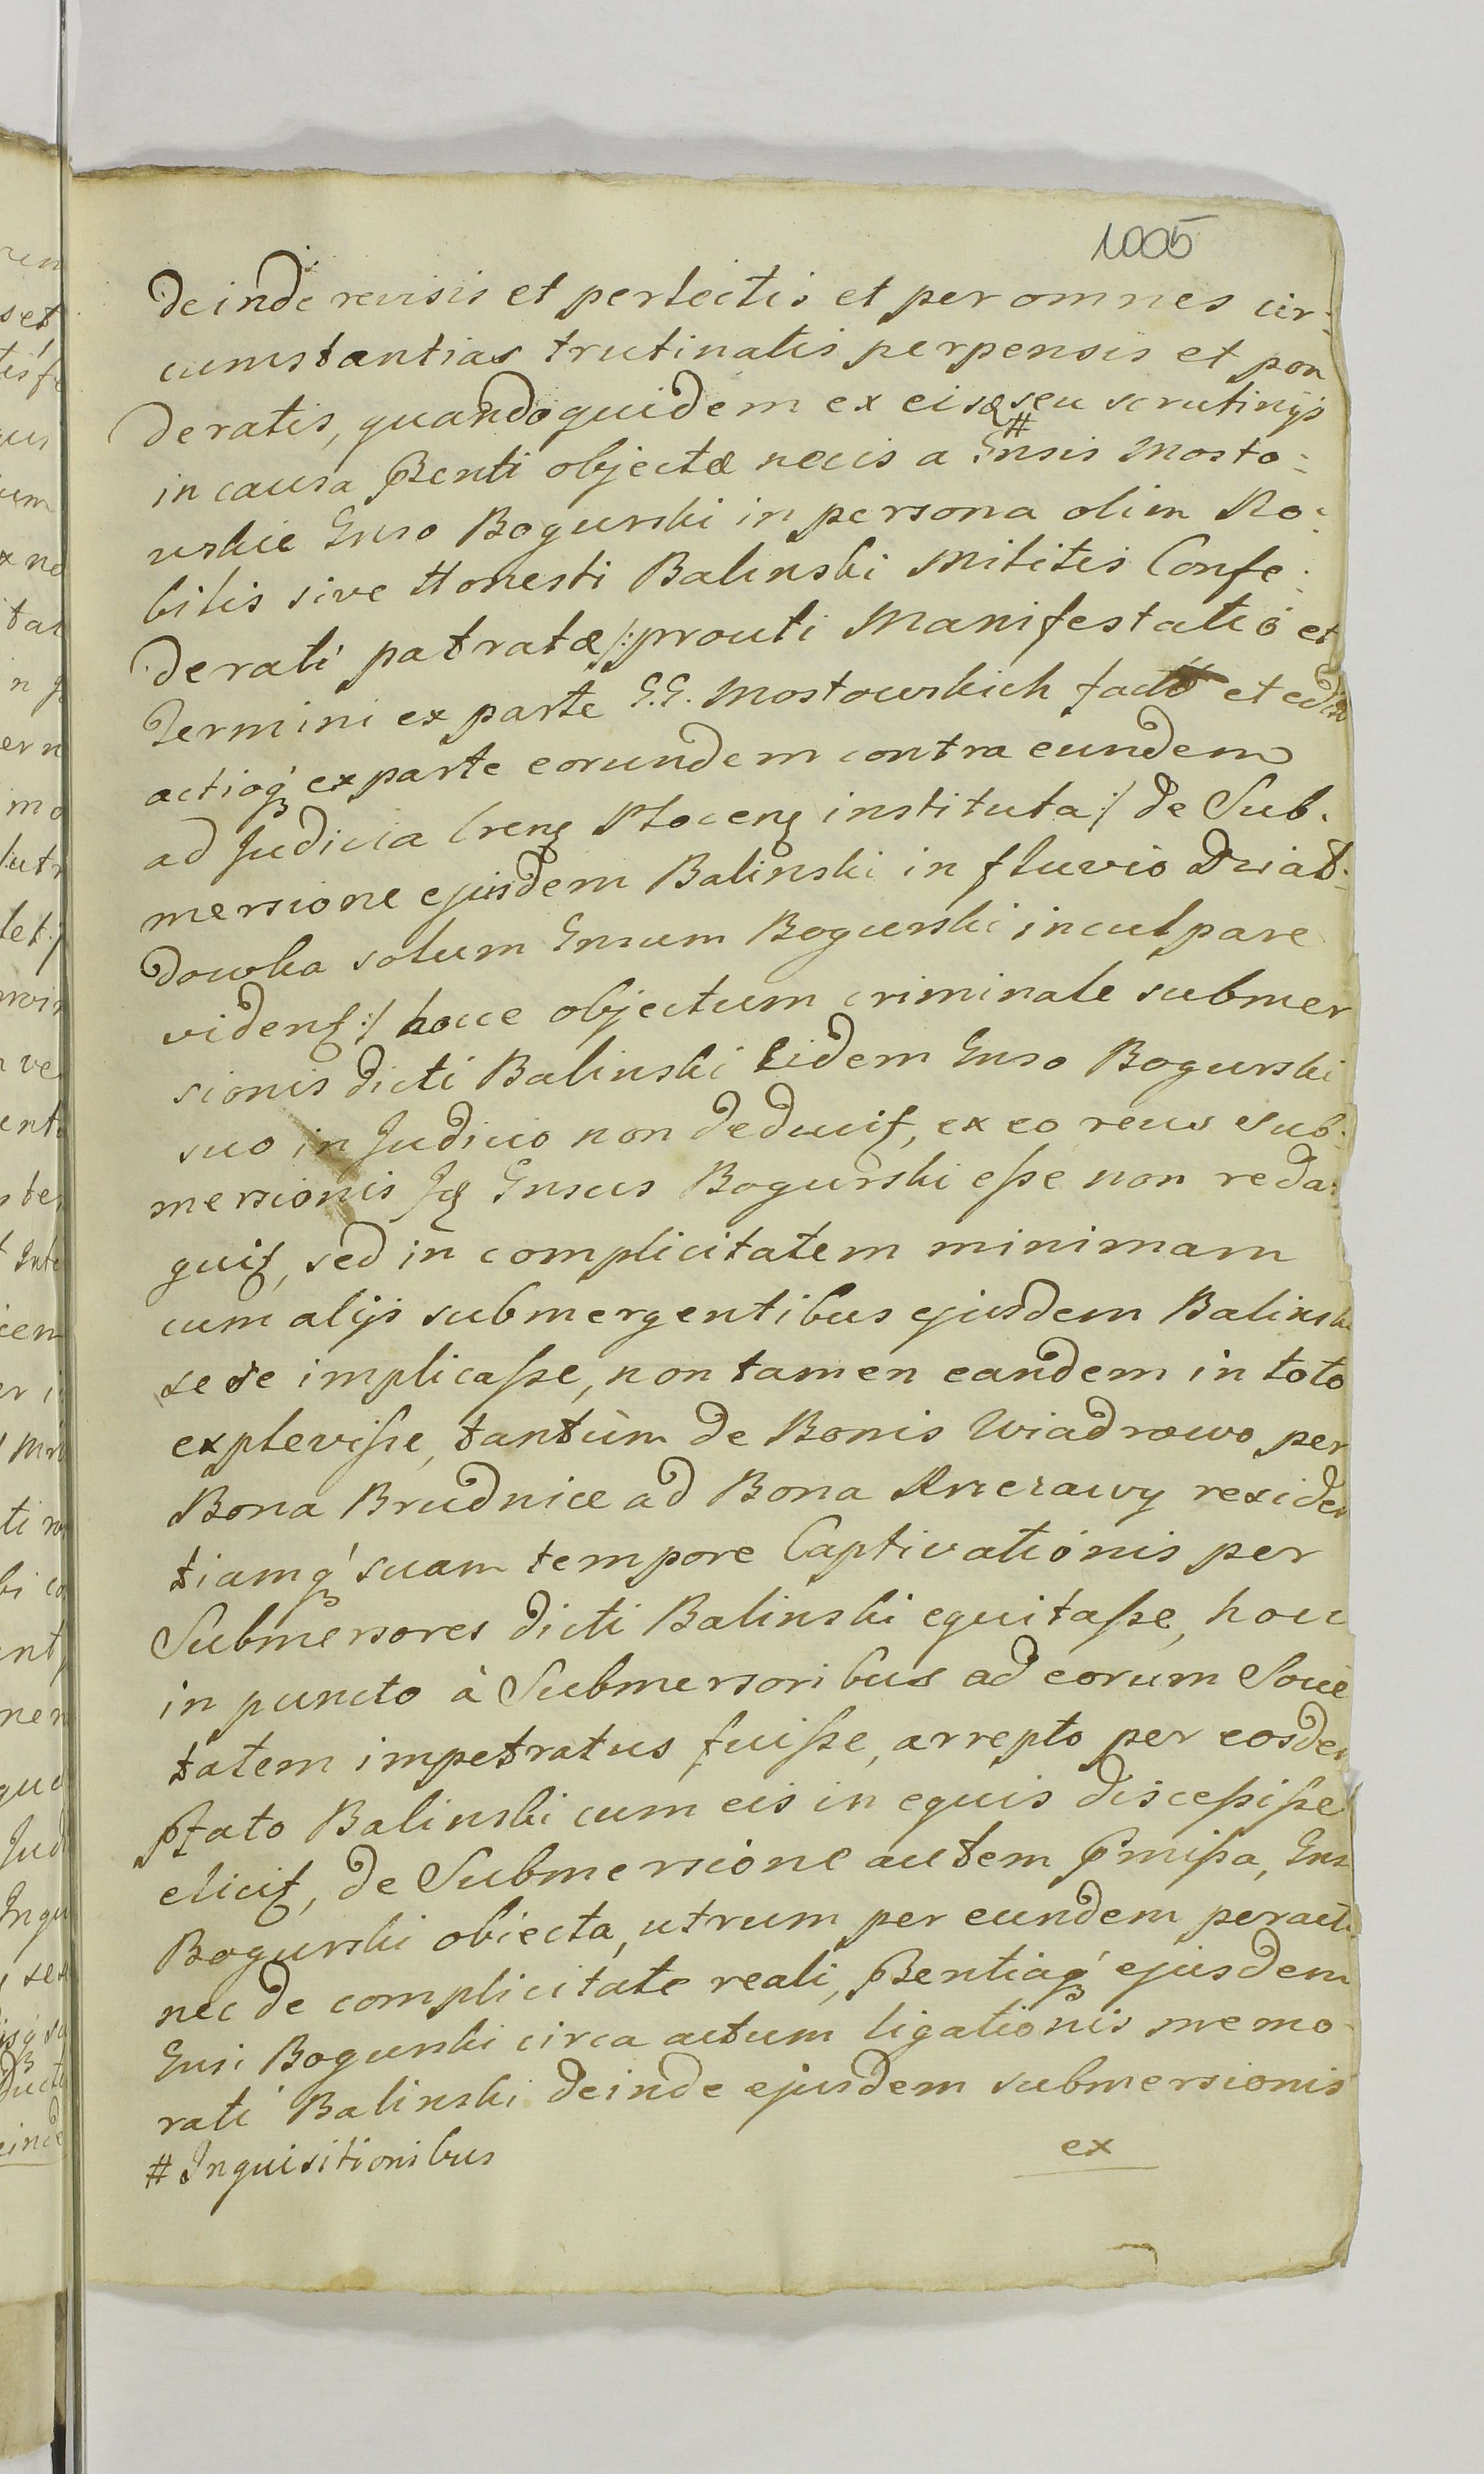 1005
deinde revisis et perlectis et per omnes cir=
cumstantias trutinatis perpensis et pon
deratis, quandoquidem ex eisdẹ # seu scrutinÿs
in causa Pṡenti objectæ necis a Gnsis Mosto=
wskie Gnso Bogurski in persona olim No=
bilis sive Honesti Balinski Militis Confe=
derati patratæ /: prouti Manifestatio et
Termini ex parte G.G. Mostowskich et
actioq́ ex parte eorundem contra eundem
ad Judicia Creng Ploceng instituta :/ de Sub=
mersione ejusdem Balinski in fluvio Dział=
dowka solum Gnsum Bogurski inculpare
videnṫ :/ hocce objectum criminale submer
sionis dicti Balinski Eidem Gnso Bogurski
suo in Judicio non deduciṫ, ex eo reus sub=
mersionis Gnsus Bogurski eſse non reda=
guiṫ, sed in complicitatem minimam
cum alÿs submergentibus ejusdem Balinski
sese implicaſse, non tamen eandem in toto
expleviſse, tantùm de Bonis Wiadrowo per
Bona Brudnice ad Bona residen
tiamq́ suam tempore Captivationis per
Submersores dicti Balinski equitaſse, hoc
in puncto à Submersoribus ad eorum Socie
tatem impetratus fuiſse, arrepto per eosdem
Pṫato Balinski cum eis in equis disceſsiſse
eliciṫ, de Submersione autem Pmiſsa, Gns
Bogurski obiecta, utrum per eundem peracta
nec de complicitate reali, Psentiaq́ ejusdem
Gnsi Bogurski circa actum ligationis memo
rati Balinski deinde ejusdem submersionis
# Inquisitionibus
ex